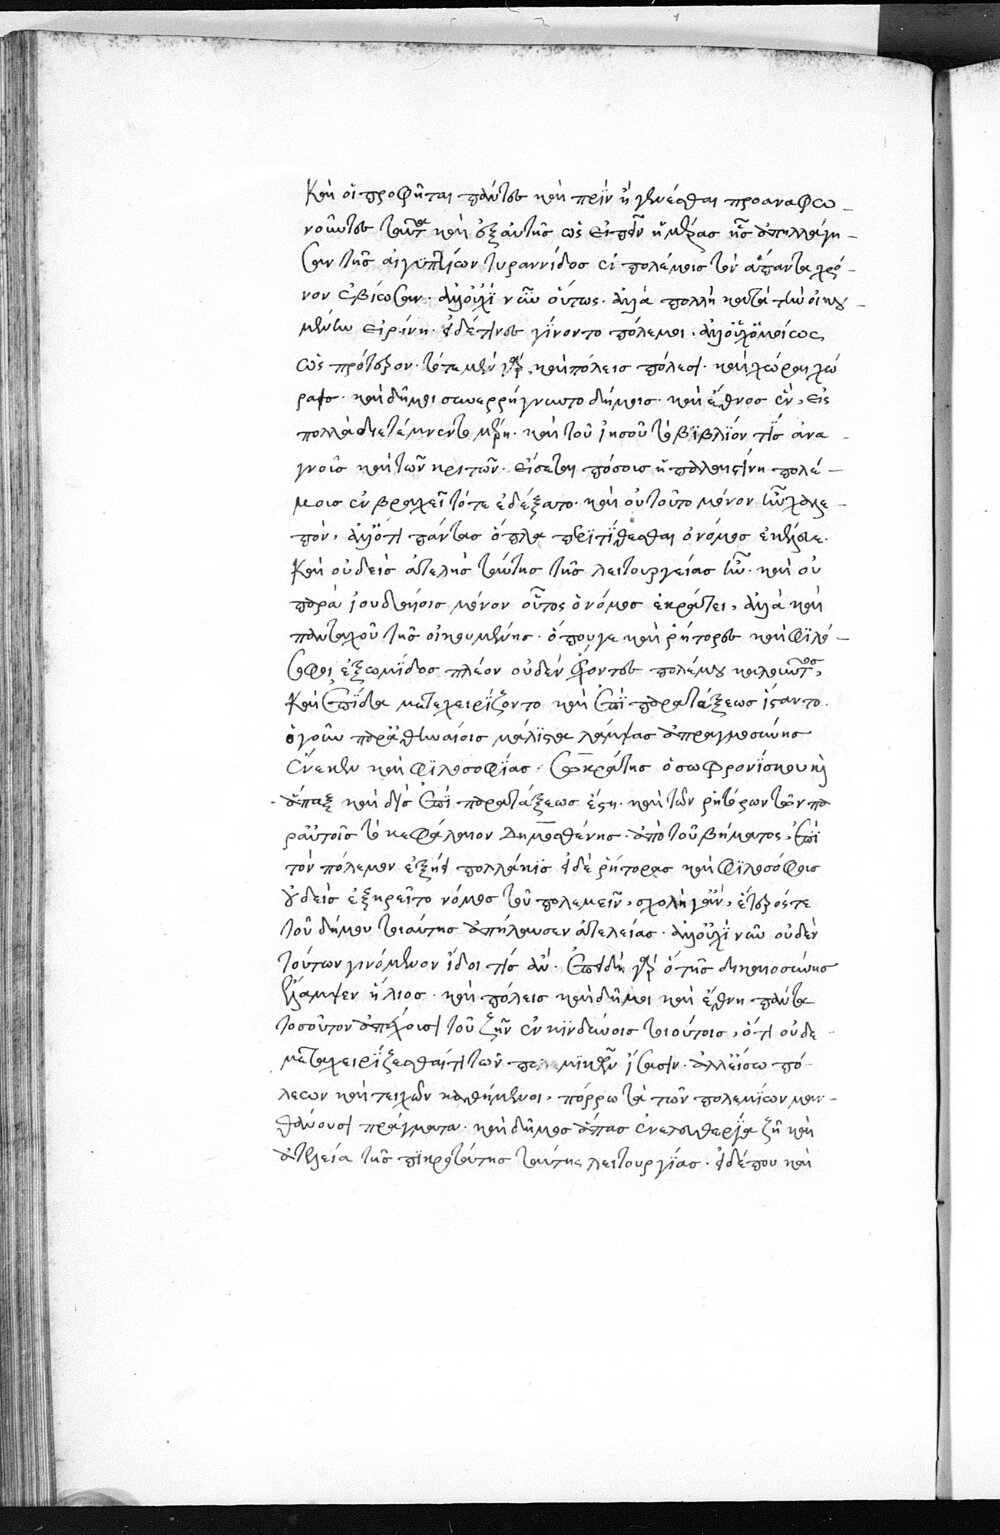 Καὶ οἱ προφῆται πάντες καὶ πρὶν ἢ γενέσθαι προαναφω-
νοῦντες ταῦτα καὶ ἐξ αὐτῆς ὡς εἰπεῖν ἡμέρας ἧς ἀπηλλάγη-
σαν τῆς αἰγυπτίων τυραννίδος ἐν πολέμοις τὸν ἅπαντα χρό-
νον ἐβίωσαν. ἀλλ' οὐχὶ νῦν οὕτως. ἀλλὰ πολλὴ κατὰ τὴν οἰκου-
μένην εἰρήνη. εἰ δέ τινες γίνοντο πόλεμοι. ἀλλ' οὐχ ὁμοίως
ὡς πρότερον. τότε μὲν γὰρ καὶ πόλεις πόλεσι. καὶ χῶραι χώ
ραις. καὶ δῆμοι συνερρήγνυντο δήμοις. καὶ ἔθνος ἓν, εἰς
πολλὰ διετέμνετο μέρη. καὶ τοῦ ἰησοῦ τὸ βιβλίον τίς ἀνα-
γνοῖς καὶ τῶν κριτῶν. εἴσεται πόσοις ἡ παλαιστίνη πολέ-
μοις ἐν βραχεῖ τότε ἐδέξατο. καὶ οὐ τοῦτο μόνον ἦν χαλε-
πόν, ἀλλ' ὅτι πάντας ὅπλα περιτίθεσθαι ὁ νόμος ἐκέλευε.
Καὶ οὐδεὶς ἀτελὴς ταύτης τῆς λειτουργείας ἦν. καὶ οὐ
παρὰ ἰουδαίοις μόνον οὗτος ὁ νόμος ἐκράτει, ἀλλὰ καὶ
πανταχοῦ τῆς οἰκουμένης. ὅπουγε καὶ ῥήτορες καὶ φιλό-
σοφοι ἐξωμίδος πλέον οὐδὲν ἔχοντες πολέμου καλοῦντος,
Καὶ ἀσπίδα μετεχειρίζοντο καὶ ἐπὶ παρατάξεως ἵσταντο.
ὁ γοῦν παρ' ἀθηναίοις μάλιστα λάμψας ἀπραγμοσύνης
ἕνεκεν καὶ φιλοσοφίας. Σωκράτης ὁ σωφρονίσκου καὶ
ἅπαξ καὶ δὶς ἐπὶ παρατάξεως ἔστη. καὶ τῶν ῥητόρων τῶν πα
ρ' αὐτοῖς τὸ κεφάλαιον Δημοσθένης. ἀπὸ τοῦ βήματος, ἐπὶ
τὸν πόλεμον ἐξήει πολλάκις εἰ δὲ ῥήτορας καὶ φιλοσόφους
οὐδεὶς ἐξηρεῖτο νόμος τοῦ πολεμεῖν, σχολῇ γοῦν, ἕτερός τε
τοῦ δήμου τοιαύτης ἀπήλαυσεν ἀτελείας. ἀλλ' οὐχὶ νῦν οὐδὲν
τούτων γινόμενον ἴδοι τίς ἂν. Ἐπειδὴ γὰρ ὁ τῆς δικαιοσύνης
ἔλαμψεν ἥλιος. καὶ πόλεις καὶ δῆμοι καὶ ἔθνη πάντα
τοσοῦτον ἀπέχουσι τοῦ ζῆν ἐν κινδύνοις τοιούτοις, ὅτι οὐδὲ
μεταχειρίζεσθαί τι τῶν πολεμικῶν ἴσασιν. ἀλλ' εἴσω πό-
λεων καὶ τειχῶν καθήμενοι, πόρρω τὰ τῶν πολεμίων μαν-
θάνουσι πράγματα. καὶ δῆμος ἅπας ἐν ἐλευθερίᾳ ζῆ καὶ
ἀτελεία τῆς πικροτάτης ταύτης λειτουργίας. εἰ δέ που καὶ